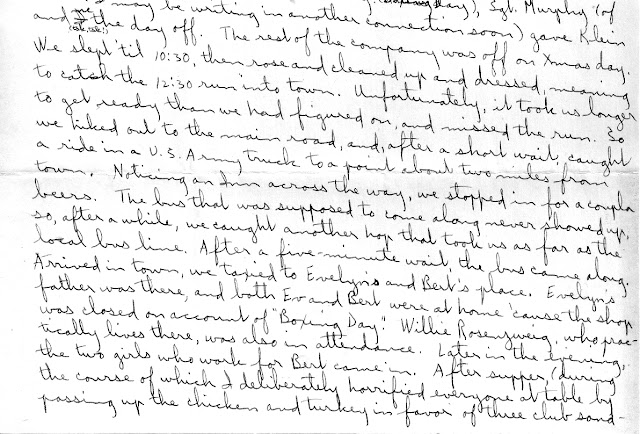 I may be writing in another connection soon), Sgt. Murphy (of
and me the day off. The rest of the company was off on Xmas day.
We slept 'til 10:30, then rose and cleaned up and dressed, meaning
to catch the 12:30 run into town. Unfortunately, it took us longer
to get ready than we had figured on, and missed the run. So
we hiked out to the main road, and, after a short wait, caught
a ride in a U.S. Army truck to a point about two miles from
town. Noticing an Inn across the way, we stopped in for a coupla
beers. The bus that was supposed to come along never showed up,
so, after a while, we caught another hop that took us as far as the
local bus line. After a five-minute wait, the bus came along.
Arrived in town, we taxied to Evelyn's and Bert's place. Evelyn's
father was there, and both Ev and Bert were at home 'cause the shop
was closed on account of "Boxing Day". Willie Rosenzweig, who prac-
tically lives there, was also in attendance. Later in the evening,
the two girls who work for Bert came in. After supper, (during
the course of which I deliberately horrified everyone at table by
passing up the chicken and turkey in favor of three club sand-